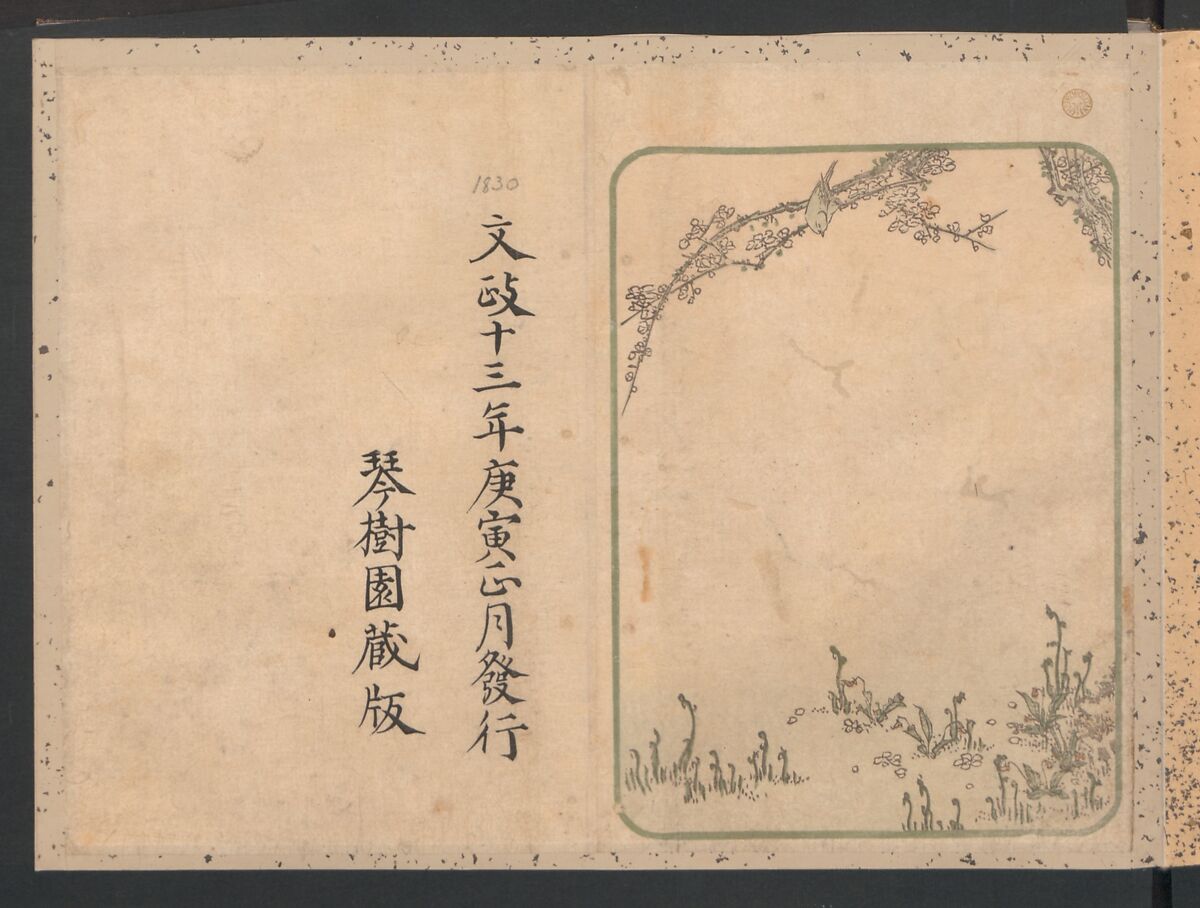 1830
文政十三年庚寅正月發行
琴樹園藏版